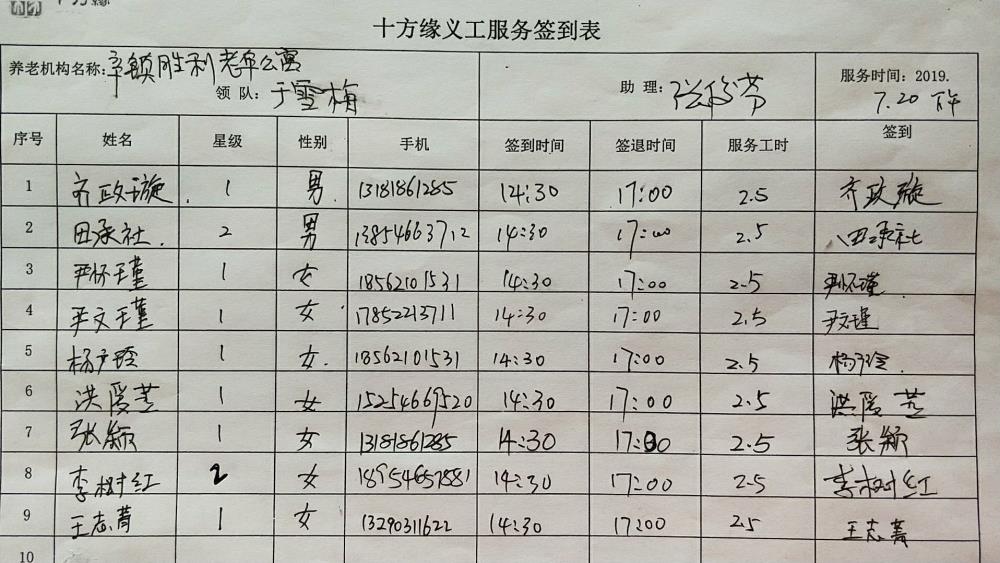 十方缘义工服务签到表
养老机构名称:辛镇胜利老年公寓
领 队:于雪梅 助 理: 服务时间:2019.
7.20 下午
序号 姓名 星级 性别 手机 签到时间 签退时间 服务工时 签到
1 齐政璇 1 男 13181861285 14:30 17:00 2.5 齐政璇
2 田承社 2 男 13854663712 14:30 17:00 2.5 田承社
3 尹怀瑾 1 女 18562101531 14:30 17:00 2.5 尹怀瑾
4 尹文瑾 1 女 17852213711 14:30 17:00 2.5 尹文瑾
5 杨户玲 1 女 18562101531 14:30 17:00 2.5
6 洪爱芝 1 女 15254669520 14:30 17:00 2.5 洪爱芝
7 张颖 1 女 13181861285 14:30 17:00 2.5 张颖
8 李树红 2 女 18954657881 14:30 17:00 2.5 李树红
9 王志菁 1 女 13290311622 14:30 17:00 2.5 王志菁
10